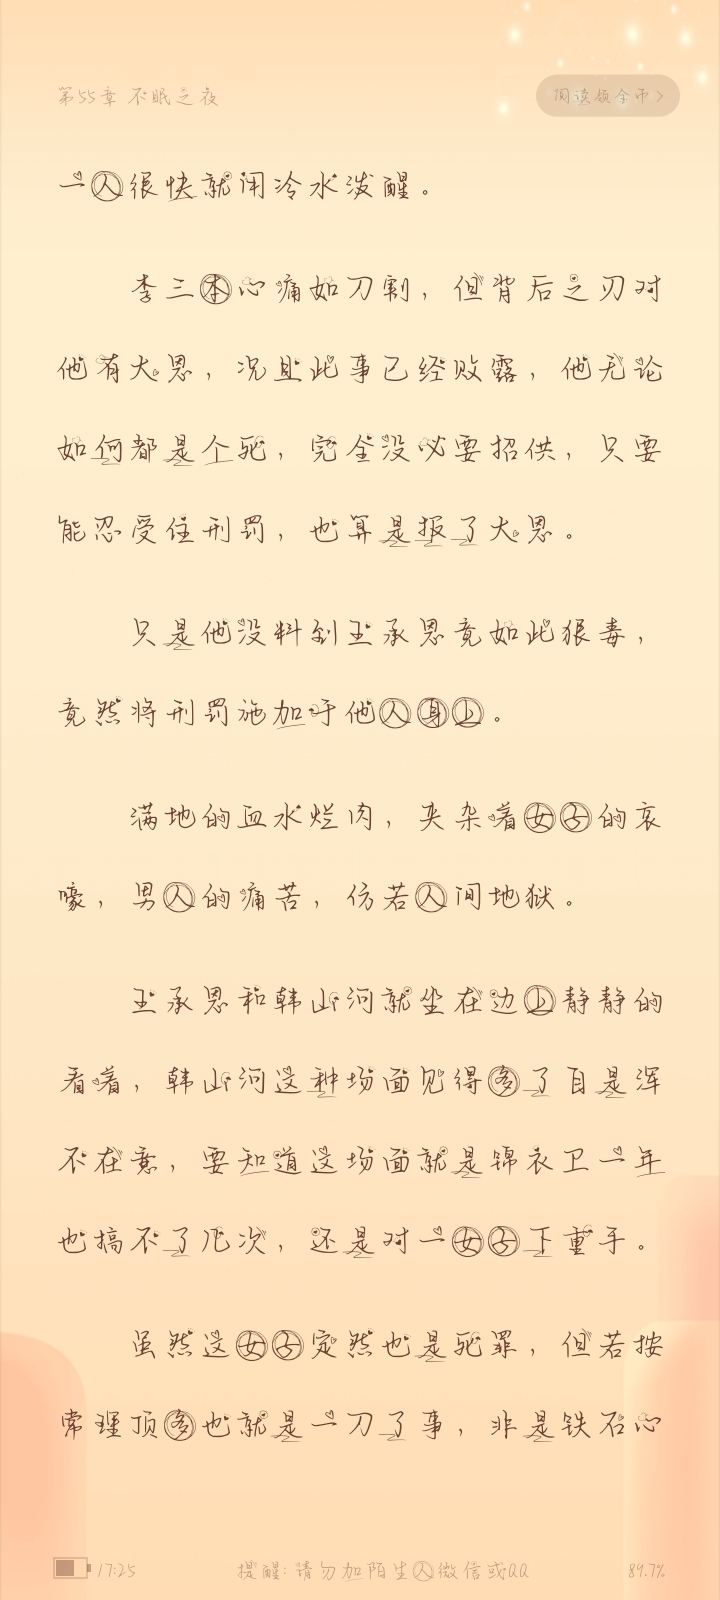 第55章 不眠之夜
阅读领金币 >
一人很快就用冷水泼醒。
李三本心痛如刀割，但背后之人对
他有大恩，况且此事已经败露，他无论
如何都是个死，完全没必要招供，只要
能忍受住刑罚，也算是报了大恩。
只是他没料到王承恩竟如此狠毒，
竟然将刑罚施加于他人身上。
满地的血水烂肉，夹杂着女子的哀
嚎，男人的痛苦，仿若人间地狱。
王承恩和韩山河就坐在边上静静的
看着，韩山河这种场面见得多了自是浑
不在意，要知道这场面就是锦衣卫一年
也搞不了几次，还是对一女子下重手。
虽然这女子定然也是死罪，但若按
常理顶多也就是一刀了事，非是铁石心
17:25
提醒：请勿加陌生人微信或QQ
89.7%